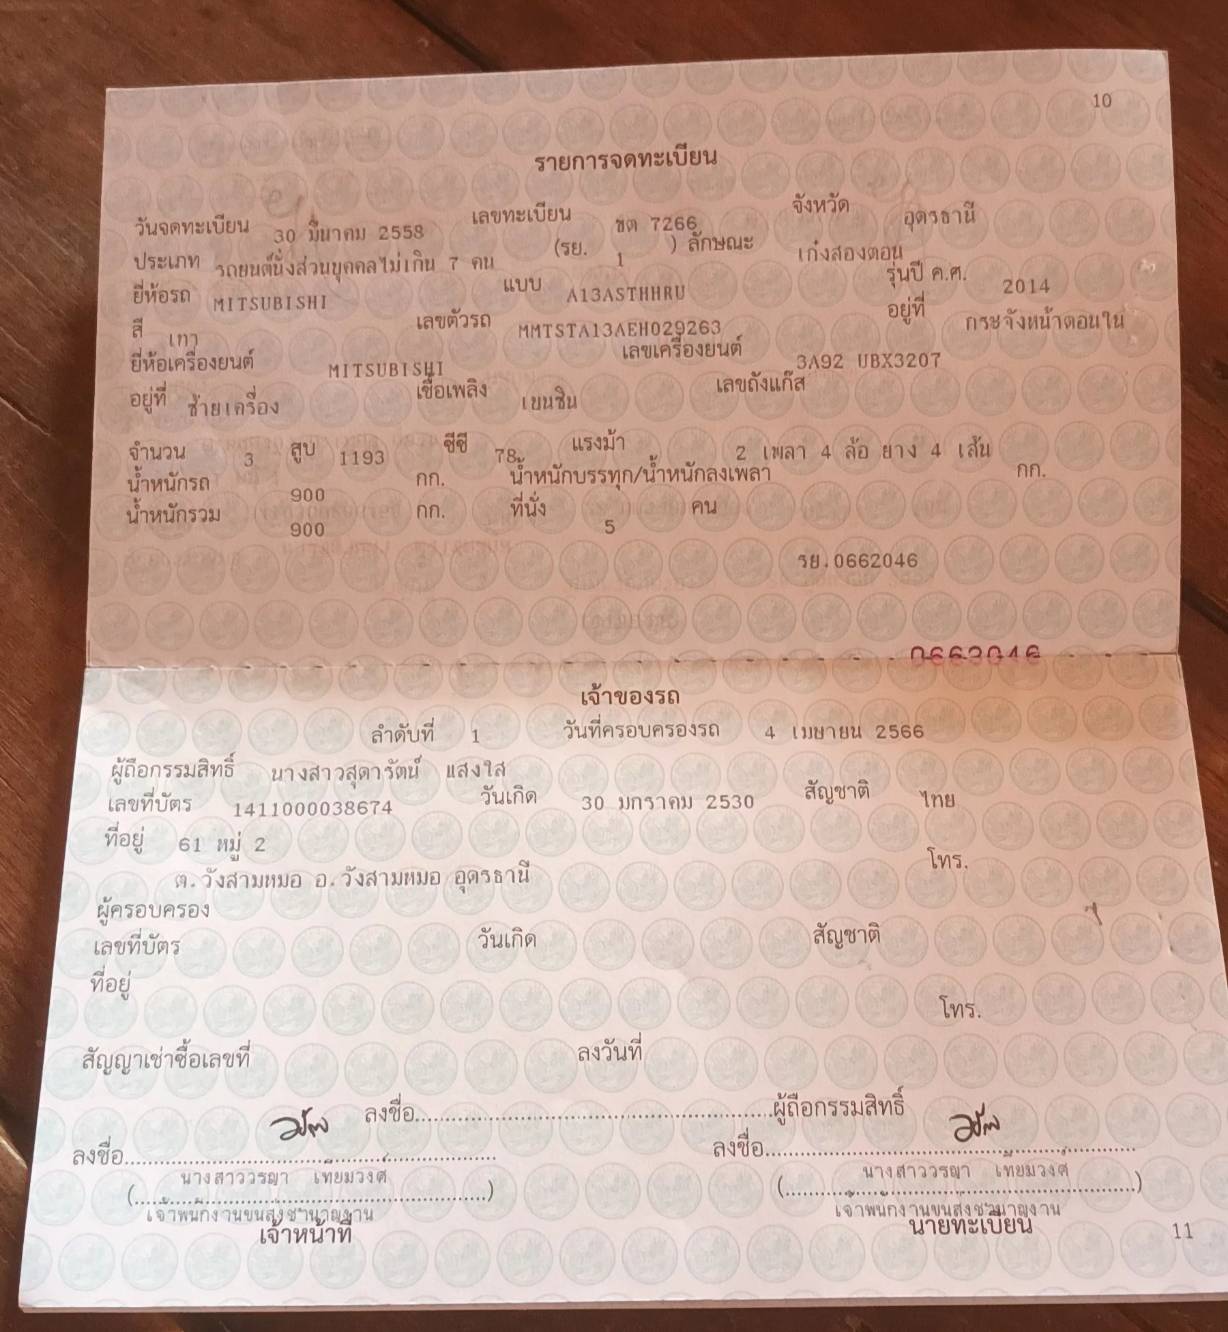 10
รายการจดทะเบียน
วันจดทะเบียน 30 มีนาคม 2558 เลขทะเบียน ขต 7266 จังหวัด อุดรธานี
ประเภท รถยนต์นั่งส่วนบุคคลไม่เกิน 7 คน (รย. 1 ) ลักษณะ เก๋งสองตอน
ยี่ห้อรถ MITSUBISHI แบบ A13ASTHHRU รุ่นปี ค.ศ. 2014
สี เทา เลขตัวรถ MMTSTA13AEH029263 อยู่ที่ กระจังหน้าตอนใน
ยี่ห้อเครื่องยนต์ MITSUBISHI เลขเครื่องยนต์ 3A92 UBX3207
อยู่ที่ ซ้ายเครื่อง เชื้อเพลิง เบนซิน เลขถังแก๊ส
จำนวน 3 สูบ 1193 ซีซี 78 แรงม้า 2 เพลา 4 ล้อ ยาง 4 เส้น
น้ำหนักรถ 900 กก. น้ำหนักบรรทุก/น้ำหนักลงเพลา กก.
น้ำหนักรวม 900 กก. ที่นั่ง 5 คน
รย.0662046
0662046
เจ้าของรถ
ลำดับที่ 1 วันที่ครอบครองรถ 4 เมษายน 2566
ผู้ถือกรรมสิทธิ์ นางสาวสุดารัตน์ แสงใส
เลขที่บัตร 1411000038674 วันเกิด 30 มกราคม 2530 สัญชาติ ไทย
ที่อยู่ 61 หมู่ 2
ต.วังสามหมอ อ.วังสามหมอ อุดรธานี โทร.
ผู้ครอบครอง
เลขที่บัตร วันเกิด สัญชาติ
ที่อยู่
โทร.
สัญญาเช่าซื้อเลขที่ ลงวันที่
ลงชื่อ ผู้ถือกรรมสิทธิ์
ลงชื่อ ลงชื่อ
นางสาววรญา เทียมวงศ์ นางสาววรญา เทียมวงศ์
เจ้าพนักงานขนส่งชำนาญงาน เจ้าพนักงานขนส่งชำนาญงาน
เจ้าหน้าที่ นายทะเบียน
11